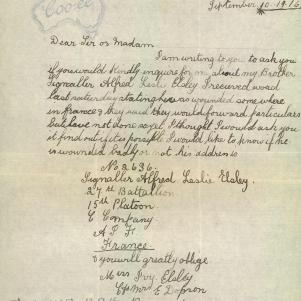 Coo-ee
September 10-1916
Dear Sir or Madam
I am writing to you to ask you
if you would kindly inquire for me about my Brother
Signaller Alfred Leslie Elsley I received word
last saturday stating he was wounded some where
in france & they said they would forward particulars
but have not done so yet, I thought I would ask you
to find out if its possible I would like to know if he
is wounded badly or not his address is
No 2636.
Signaller Alfred Leslie Elsley.
27th Battalion
15th Platoon
C Company.
A I F
France
& you will greatly oblige
Mrs Ivy. Elsley
C/o Mrs E